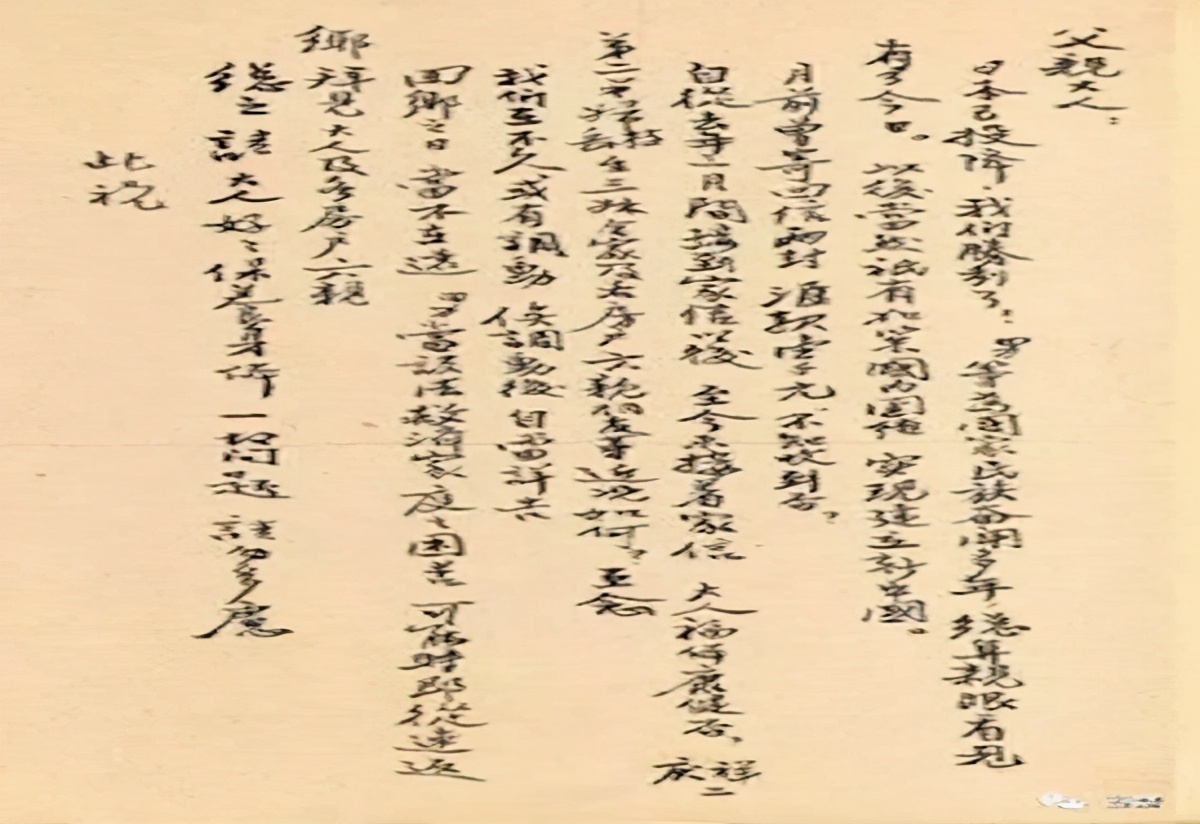 父親大人：
日本已投降，我们勝利了！男等為国家民族奋闘多年，總算親眼看見
有了今日。以後當然祇有和平國内团结 实现建立新中國。
月前曾寄回信两封 滙款壹千元 不知收到否？
自從去年二月間接到家信以後 至今未接着家信 大人福体康健否、祥二
第二 三妹全家及各房户六親們 近况如何？至念
我们在不久或有調動 俟調動後自當詳告
回鄉之日當不在遠 男當設法救濟家庭之困苦 可能時即從速返
鄉拜見大人及各房户六親
總之 請大人好好保養身体 一切问題 請勿多慮
此祝